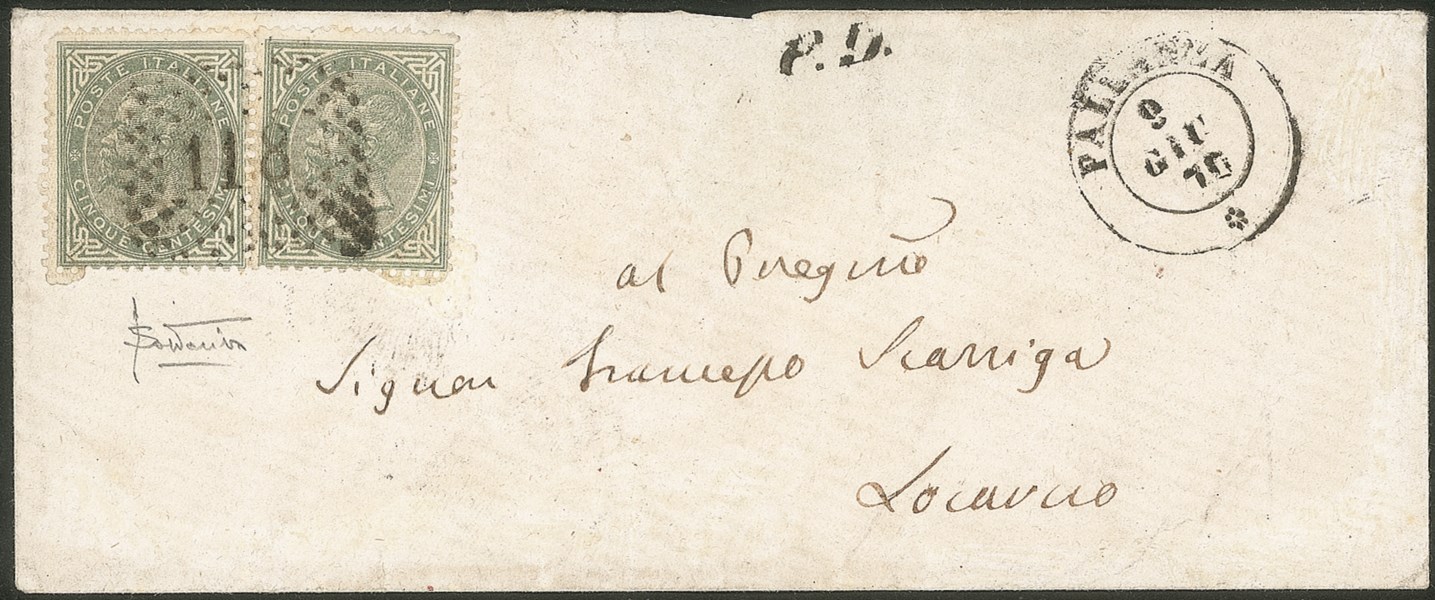 POSTE ITALIANE
CINQUE CENTESIMI
POSTE ITALIANE
CINQUE CENTESIMI
118
P. D.
PALLANZA
9
GIU
70
al Pregmo
Signor Francesco Scazziga
Locarno